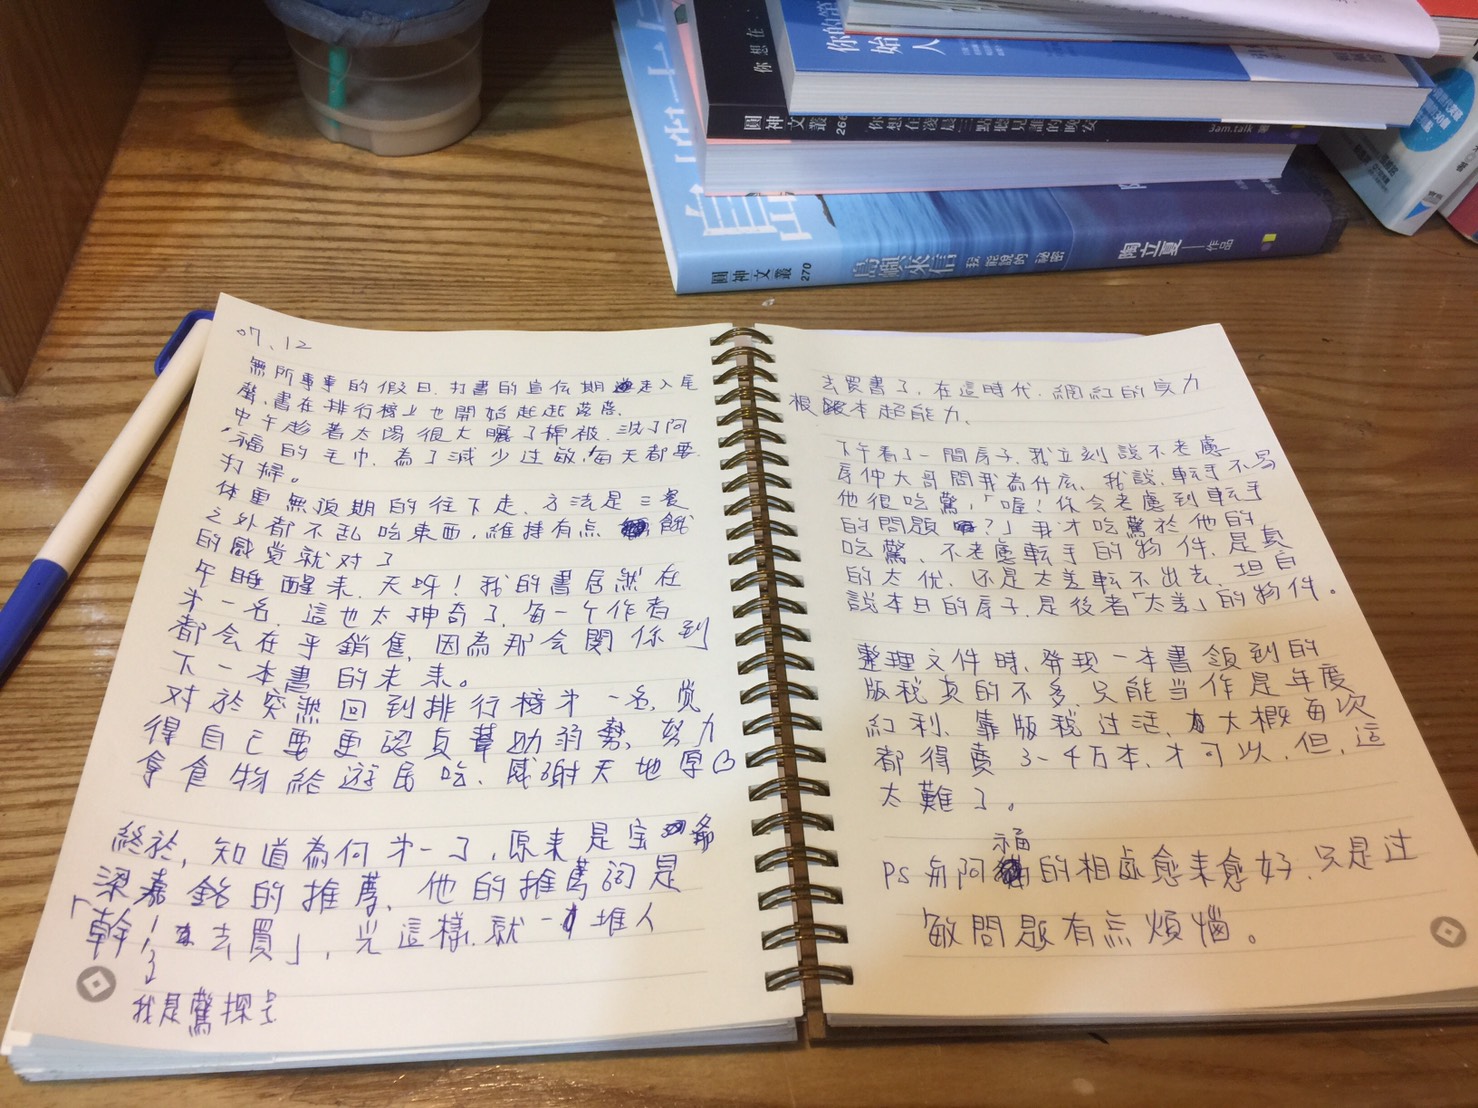 你的第
始 人
你想在
圓神文叢 266 你想在凌晨三點聽見誰的晚安 3am.talk
島嶼來信
圓神文叢 270 島嶼來信 我能說的祕密 陶立夏 作品
07、12
無所事事的假日,打書的宣传期走入尾
聲,書在排行榜上也開始起起落落、
中午趁著太陽很大曬了棉被,洗了阿
福的毛巾,為了減少过敏,每天都要
打掃。
体重無預期的往下走,方法是三餐
之外都不乱吃東西,維持有点餓
的感觉就对了
午睡醒来,天呀!我的書居然在
才一名,這也太神奇了,每一个作者
都会在乎銷售,因為那会関係到
下一本書的未来。
对於突然回到排行榜才一名,觉
得自己要更認真幫助弱勢、努力
拿食物給遊民吃、感謝天地厚
終於,知道為何才一了,原来是宝爺
梁嘉銘的推薦,他的推薦詞是
「幹!去買」,光這樣,就一堆人
我是驚探号
去買書了,在這時代,網紅的实力
根本超能力、
下午看了一間房子,我立刻說不考慮
房仲大哥問我為什広,我說,転手不易
他很吃驚,「喔!你会考慮到転手
的問題?」我才吃驚於他的
吃驚、不考慮転手的物件,是真
的太优,还是太差転不出去,坦白
說本日的房子,是後者「太差」的物件。
整理文件時,發現一本書領到的
版税真的不多,只能当作是年度
紅利、靠版税过活,大概每次
都得賣3~4万本,才可以,但,這
太難了。
PS 与阿福的相處愈来愈好,只是过
敏問題有点煩惱。